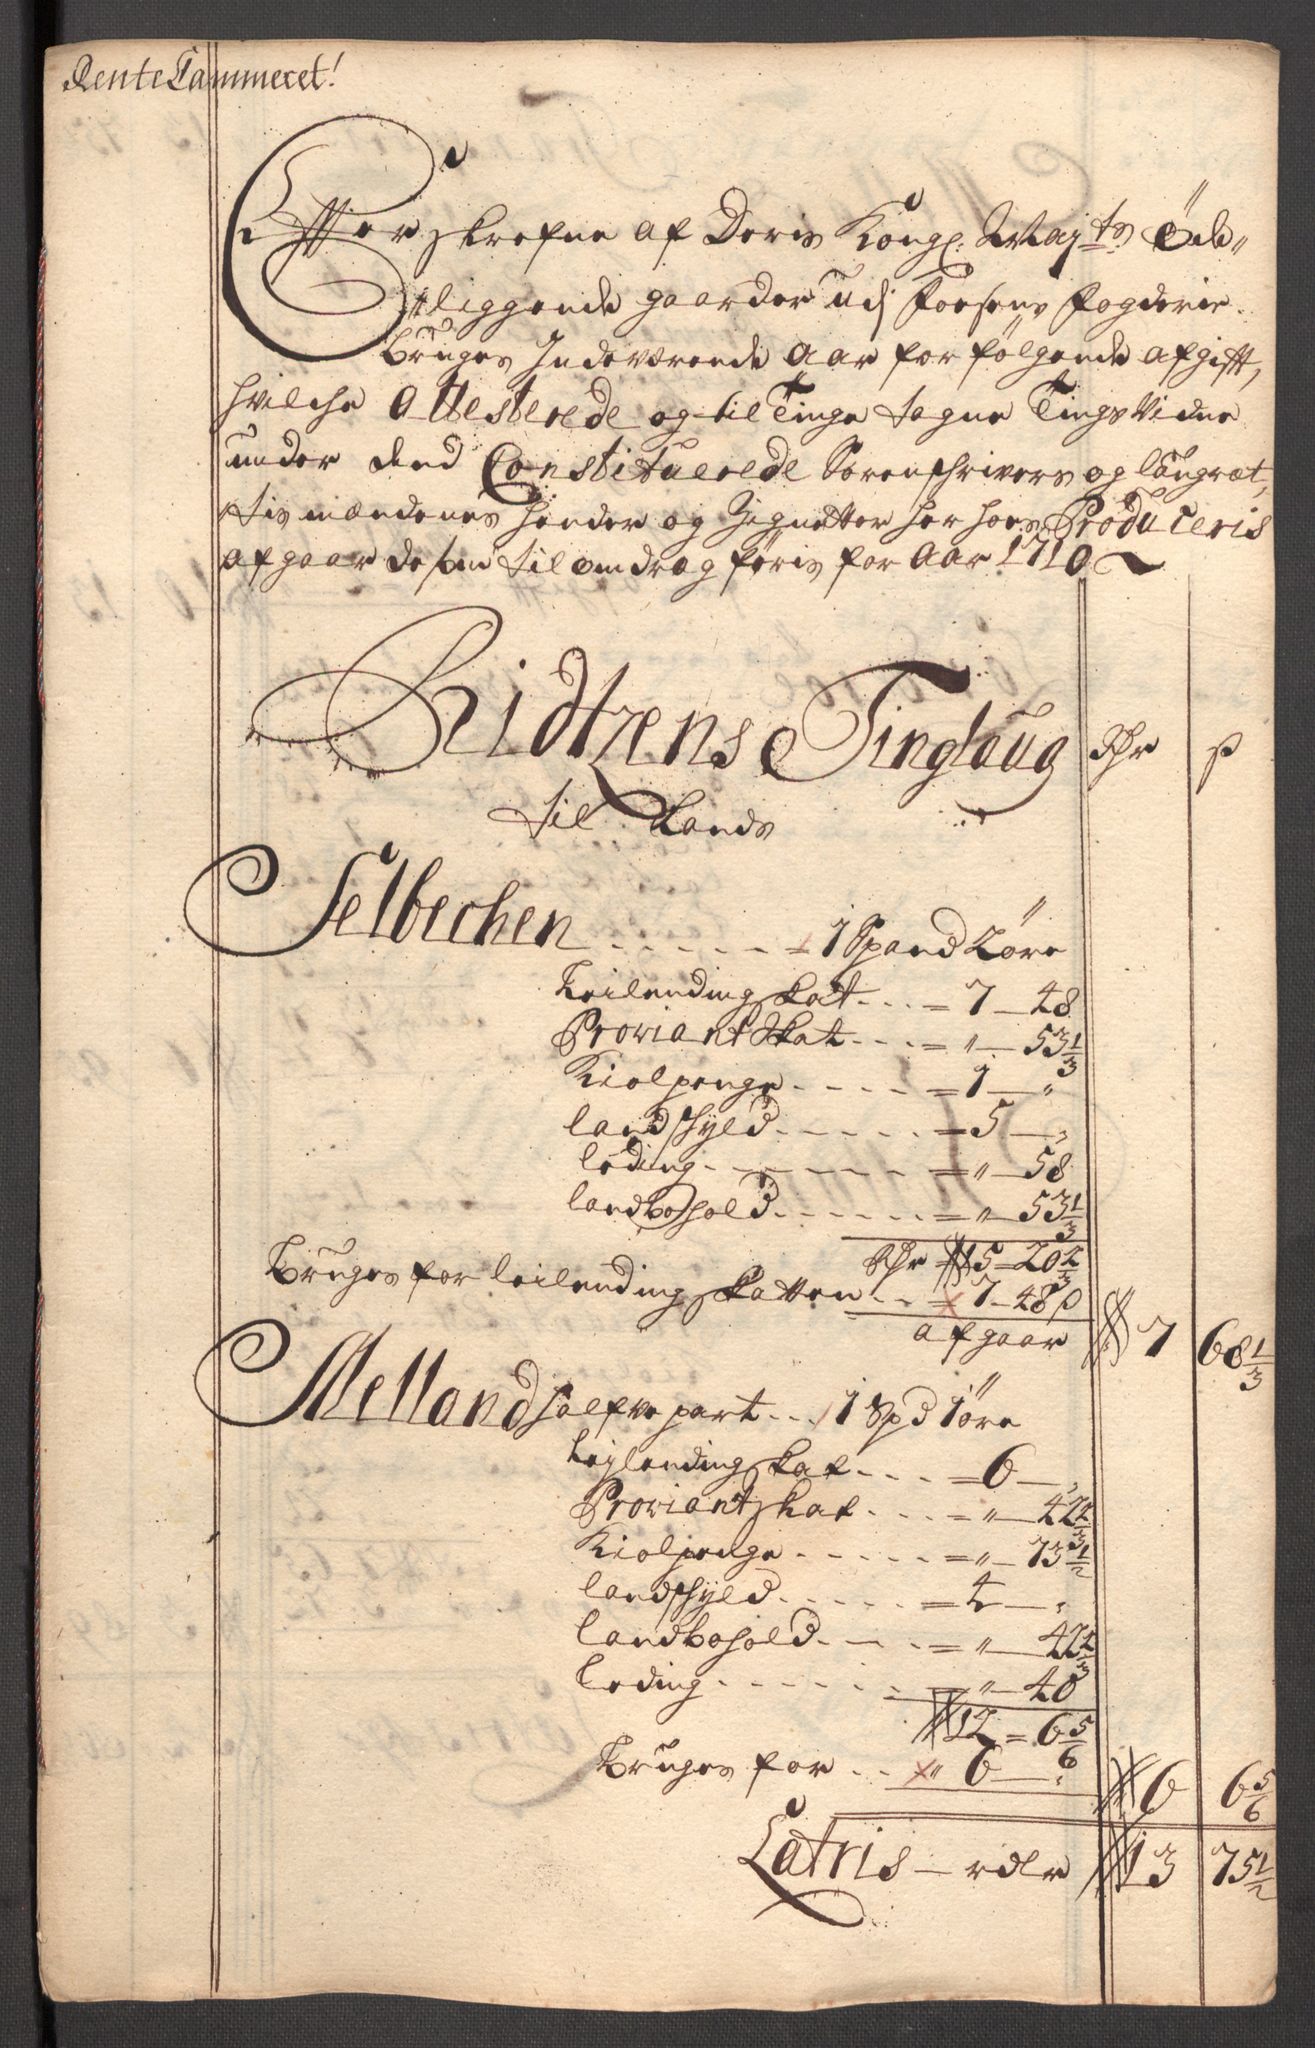 RenteCammeret!
Effterskrefne af Deris Kongl. Maj.ts Øde
liggende gaarder udj Foesens Fogderie
Bruges Indeværende Aar for følgende afgifft,
hvilche Attesterede og til Tinge tagne TingsVidne
under dend Constituerede Sorenschrivers og laugret,
tis mændenes hender og Zignetter her hoes Produceris
afgaar desom til omdrag føris for Aar 1710
Ridtzens Tinglaug Rdr ß
til Lands
Selbechen - - - - - 1 Spand 2 øre
Leilending skat - - - = 7 - 48
Proviant Skat - - - = " - 53 1/3
Kiolpenge - - - - - = 1 - "
landschyld - - - - - = 5 - "
leding - - - - - - = " - 58
landbohold - - - - - = " - 53 1/3
Rdr 15 - 20 2/3
Bruges for leilending skatten - - = 7 - 48 ß
afgaar 7 68 1/3
Melland halfve part - - 1 Spd 1 øre
Leylending skat - - - = 6 - "
Proviant skat - - - - = " - 42 2/3
Kiolpenge - - - - - = " - 73 1/2
landschyld - - - - - = 4 - "
landbohold - - - - = " - 42 2/3
Leding - - - - - - = " - 40
12 = 6 5/6
Bruges for - - " 6 - " 6 6 5/6
Latris - rdlr 13 75 1/2